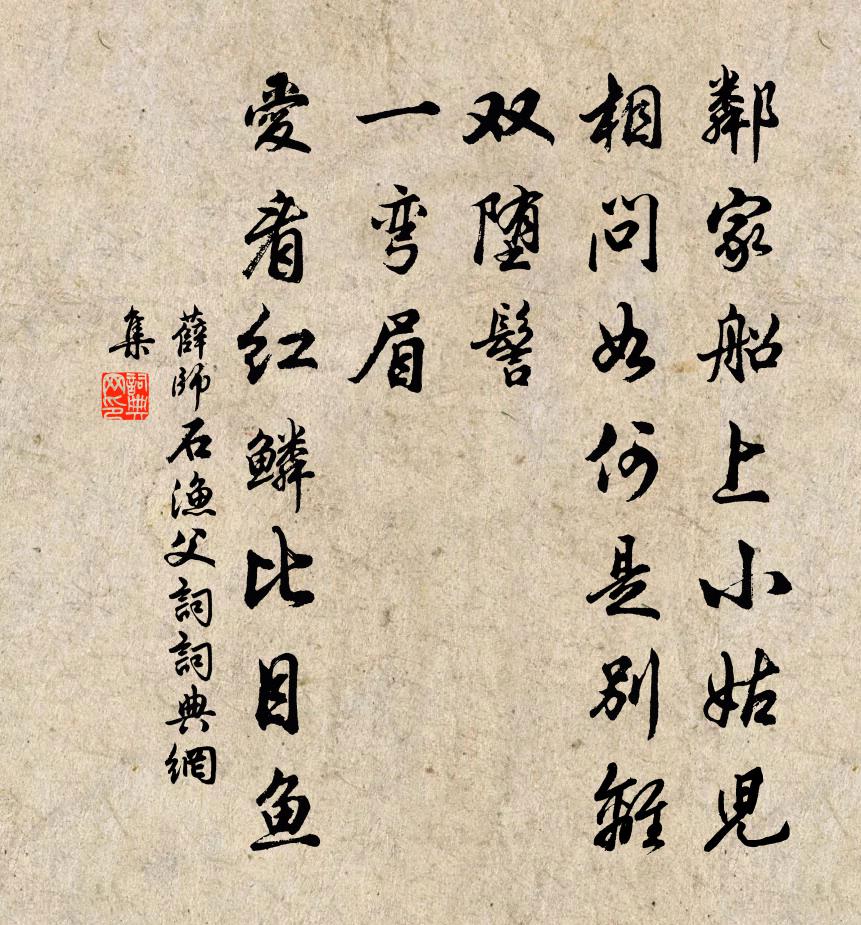 鄰家船上小姑兒
相問如何是別離
双堕髻
一彎眉
愛看紅鱗比目魚
薛師石漁父詞詞典網
集
詞典网印